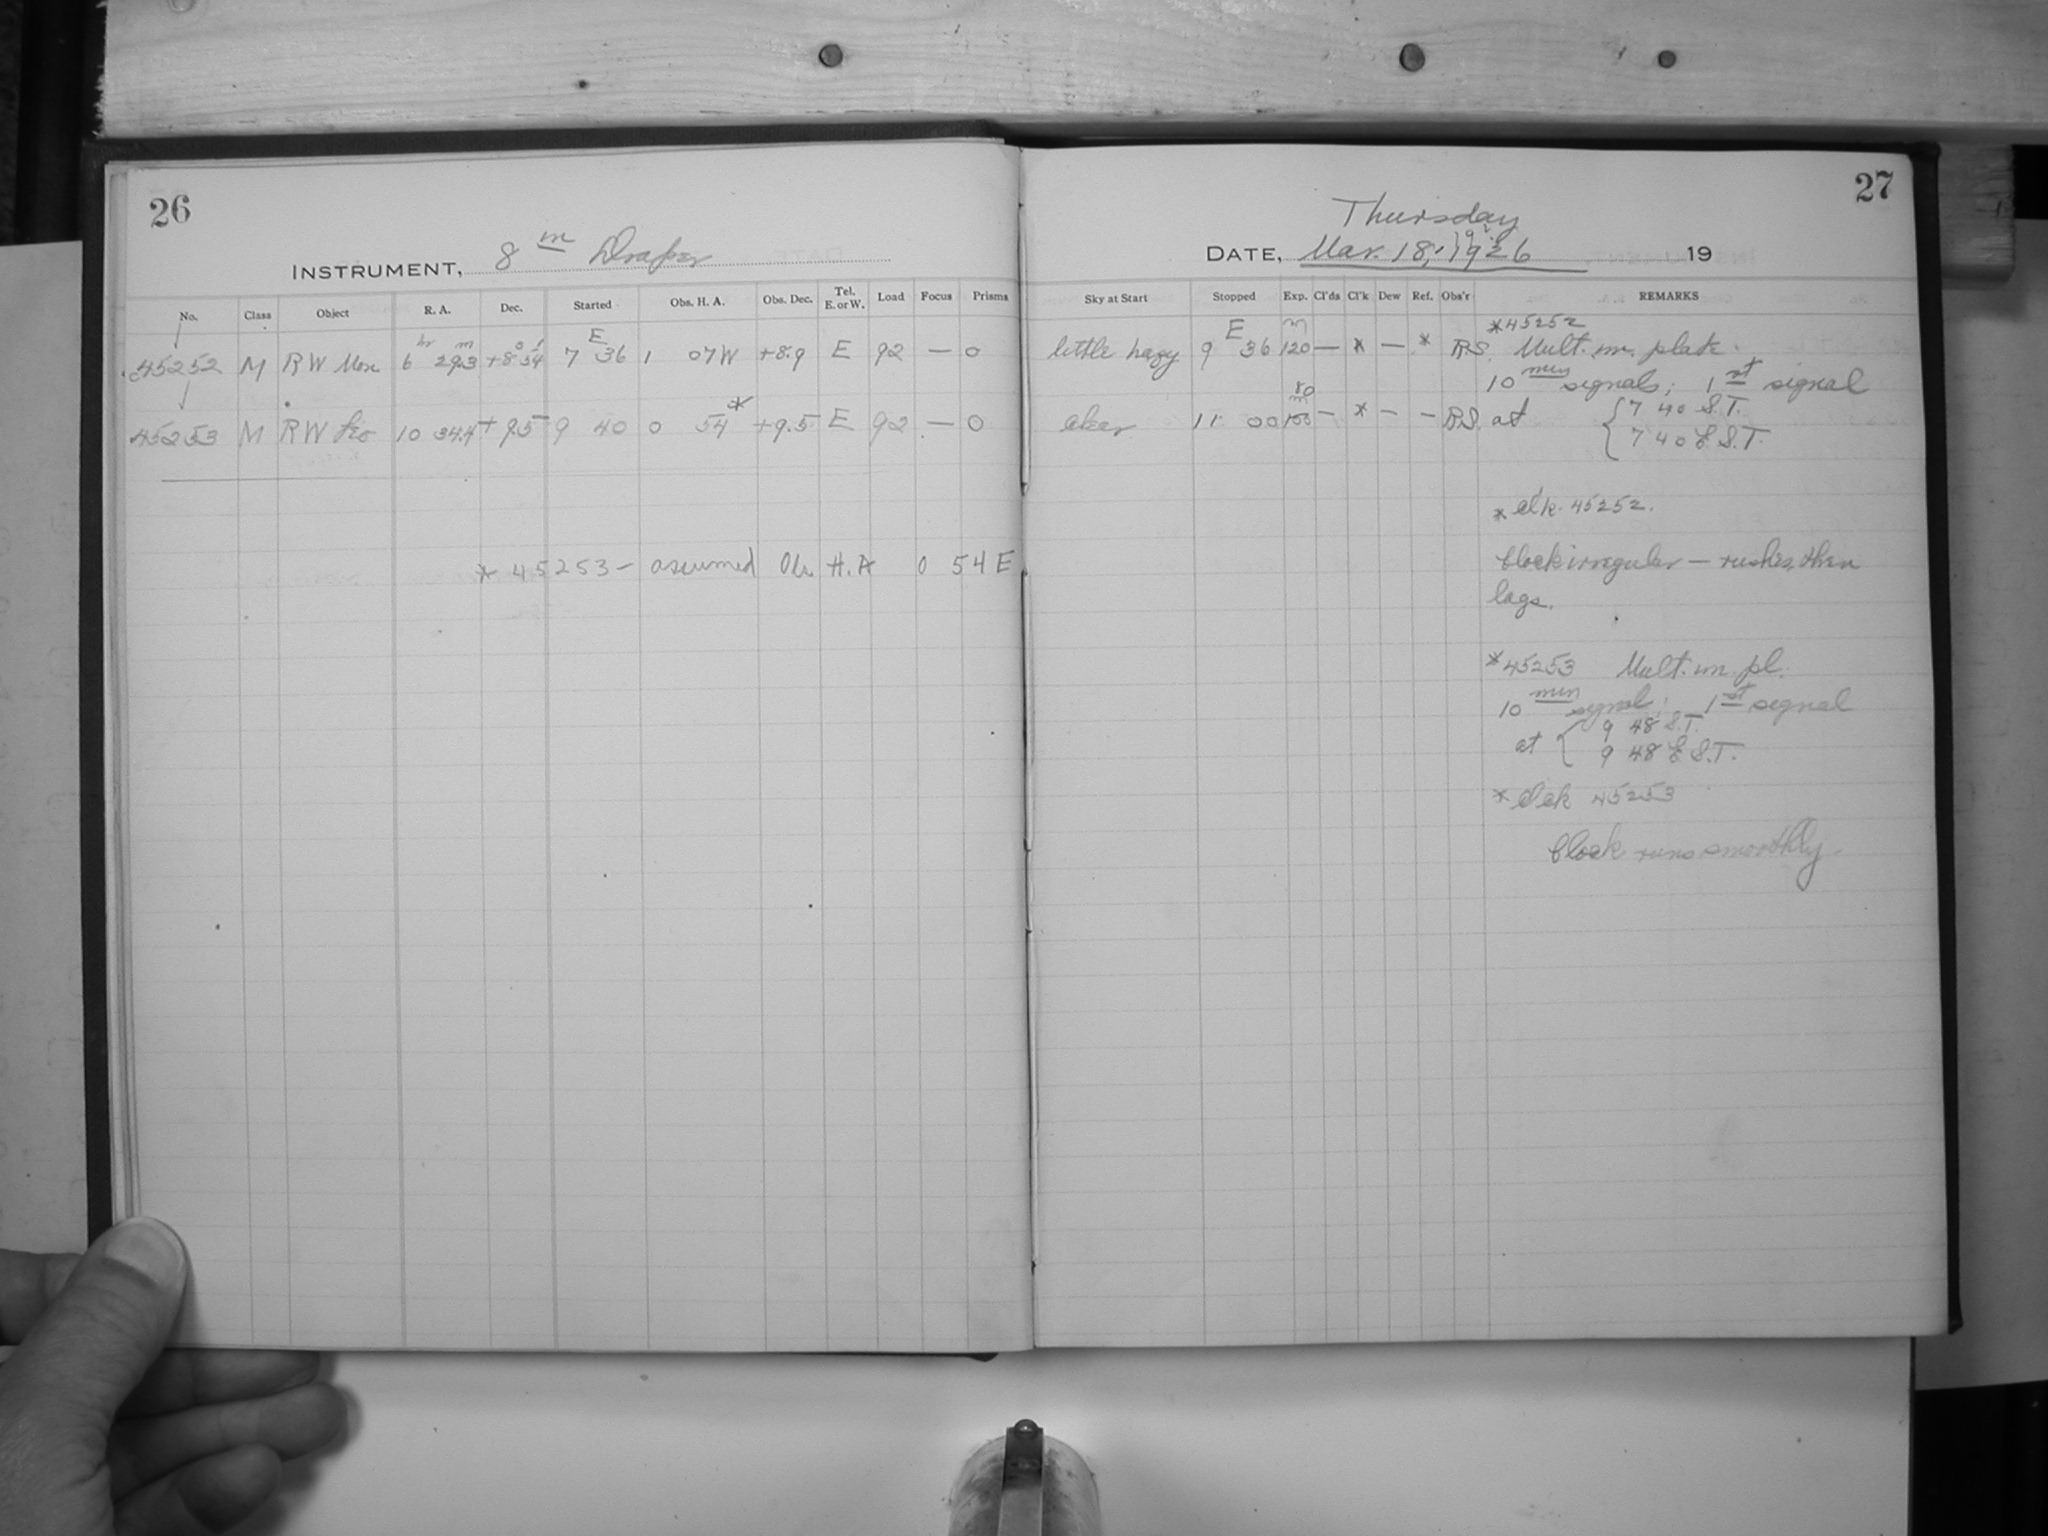 26
INSTRUMENT, 8 in Draper
No. Class Object R. A. Dec. Started Obs. H. A. Obs. Dec. Tel. E. or W. Load Focus Prisms
45252 M R W Mon 6 hr 29.3 m +8° 54' 7 E 36 1 07 W +8.9 E 92 — 0
45253 M R W Leo 10 34.4 + 9.5 9 40 0 54* +9.5 E 92 — 0
* 45253 — assumed Ob. H. A 0 54 E
27
Thursday
DATE, Mar. 18, 1926 19
Sky at Start Stopped Exp. Cl'ds Cl'k Dew Ref. Obs'r REMARKS
*45252
little hazy 9 E 36 120 m — * — * RS. Mult. im. plate.
10 min signals; 1st signal
clear 11 00 80 m — * — — RS. at { 7 40 S.T.
7 40 E S.T.
* clk. 45252.
Clock irregular — rushes, then
lags.
*45253 Mult. im. pl.
10 min signal; 1st signal
at { 9 48 S.T.
9 48 E S.T.
* Clck 45253
Clock runs smoothly.